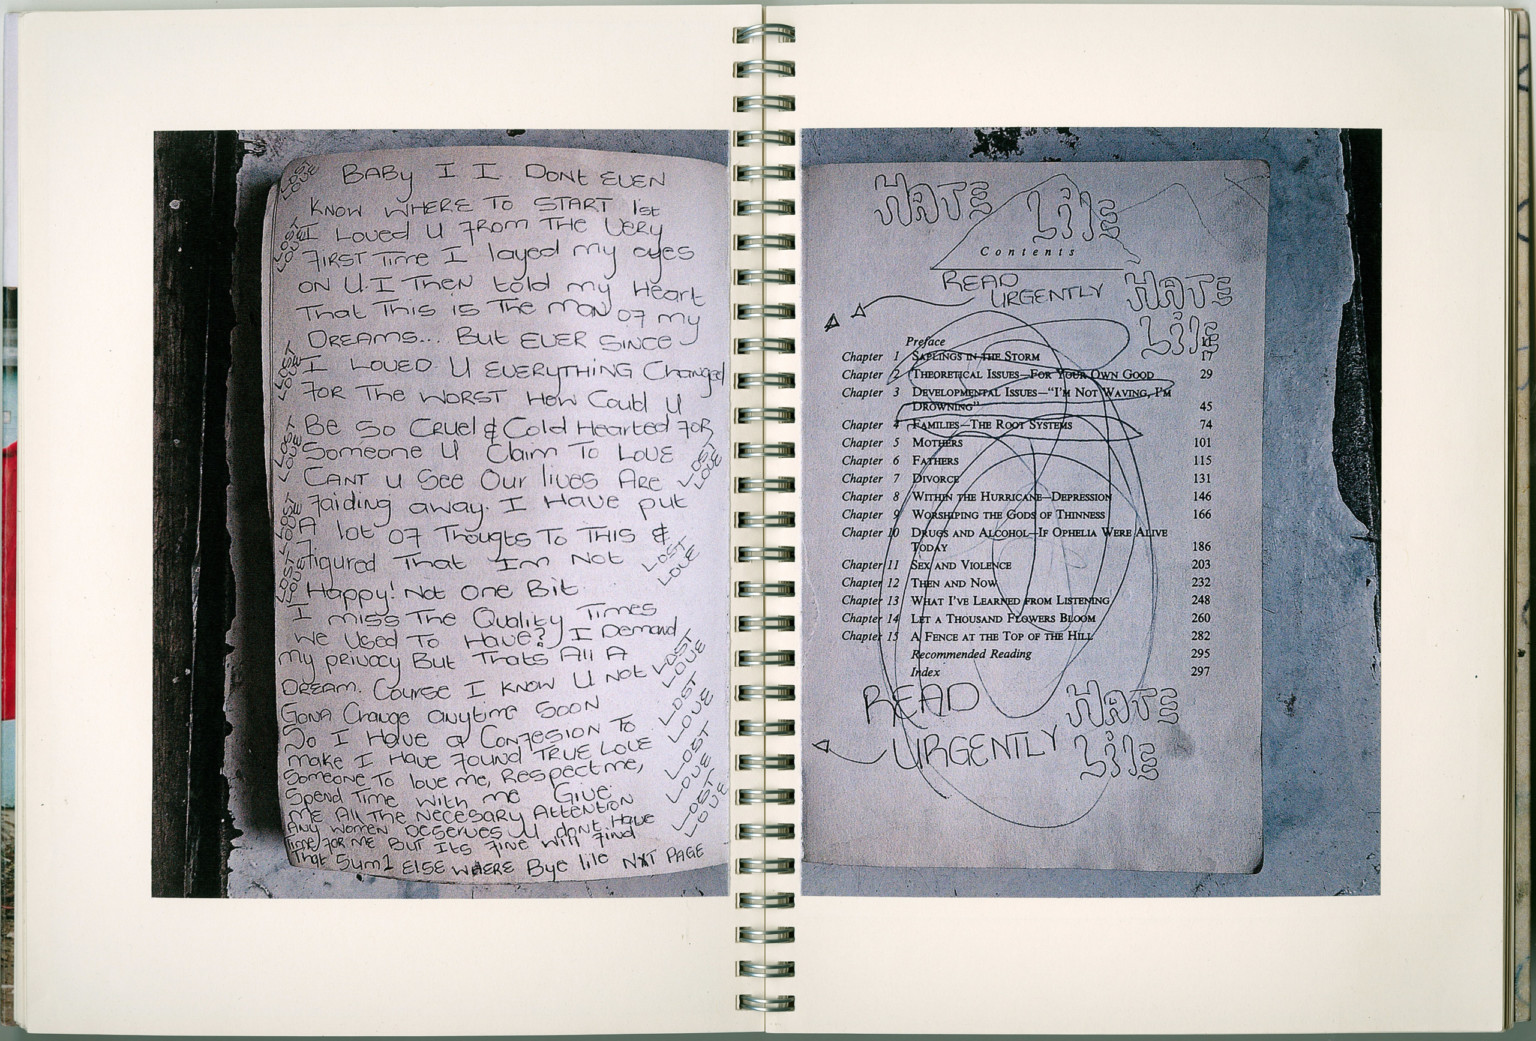 BABY I I DONT EVEN
KNOW WHERE TO START 1st
I LOVED U FROM THE VERY
FIRST TIME I layed my eyes
ON U. I THEN told my HEART
THAT THIS IS THE MAN OF my
DREAMS... BUT EVER SINCE
I LOVED U EVERYTHING Changed
FOR THE WORST HOW Could U
BE SO CRUEL & Cold HEARTED FOR
SOMEONE U Claim TO LOVE
CANT U SEE OUR lives ARE
Faiding away. I HAVE put
A lot OF Thougts TO THIS &
Figured THAT Im NOT
Happy! Not One Bit
I miss THE Quality Times
WE USED TO HAVE? I Demand
my privacy But Thats All A
DREAM. Course I KNOW U NOT
GONA Change anytime SOON
So I HAVE a CONFESION TO
make I HAVE FOUND TRUE LOVE
SOMEONE To love me, Respect me,
Spend Time with me GIVE
ME All THE NECESARY ATTENTION
ANY WOMEN DESERVES U dont HAVE
Time FOR ME BUT Its FINE Will FIND
That Sum1 ELSE WHERE Bye life NXT PAGE
LOST LOVE
LOST LOVE
LOST LOVE
LOST LOVE
LOST LOVE
LOST LOVE
LOST LOVE
LOST LOVE
LOST LOVE
LOST LOVE
LOST LOVE
LOST LOVE
HATE LIFE
Contents
READ URGENTLY
HATE LIFE
Preface
Chapter 1 SAPLINGS IN THE STORM 17
Chapter 2 THEORETICAL ISSUES—FOR YOUR OWN GOOD 29
Chapter 3 DEVELOPMENTAL ISSUES—"I'M NOT WAVING, I'M
DROWNING" 45
Chapter 4 FAMILIES—THE ROOT SYSTEMS 74
Chapter 5 MOTHERS 101
Chapter 6 FATHERS 115
Chapter 7 DIVORCE 131
Chapter 8 WITHIN THE HURRICANE—DEPRESSION 146
Chapter 9 WORSHIPING THE GODS OF THINNESS 166
Chapter 10 DRUGS AND ALCOHOL—IF OPHELIA WERE ALIVE
TODAY 186
Chapter 11 SEX AND VIOLENCE 203
Chapter 12 THEN AND NOW 232
Chapter 13 WHAT I'VE LEARNED FROM LISTENING 248
Chapter 14 LET A THOUSAND FLOWERS BLOOM 260
Chapter 15 A FENCE AT THE TOP OF THE HILL 282
Recommended Reading 295
Index 297
READ
URGENTLY
HATE
LIFE